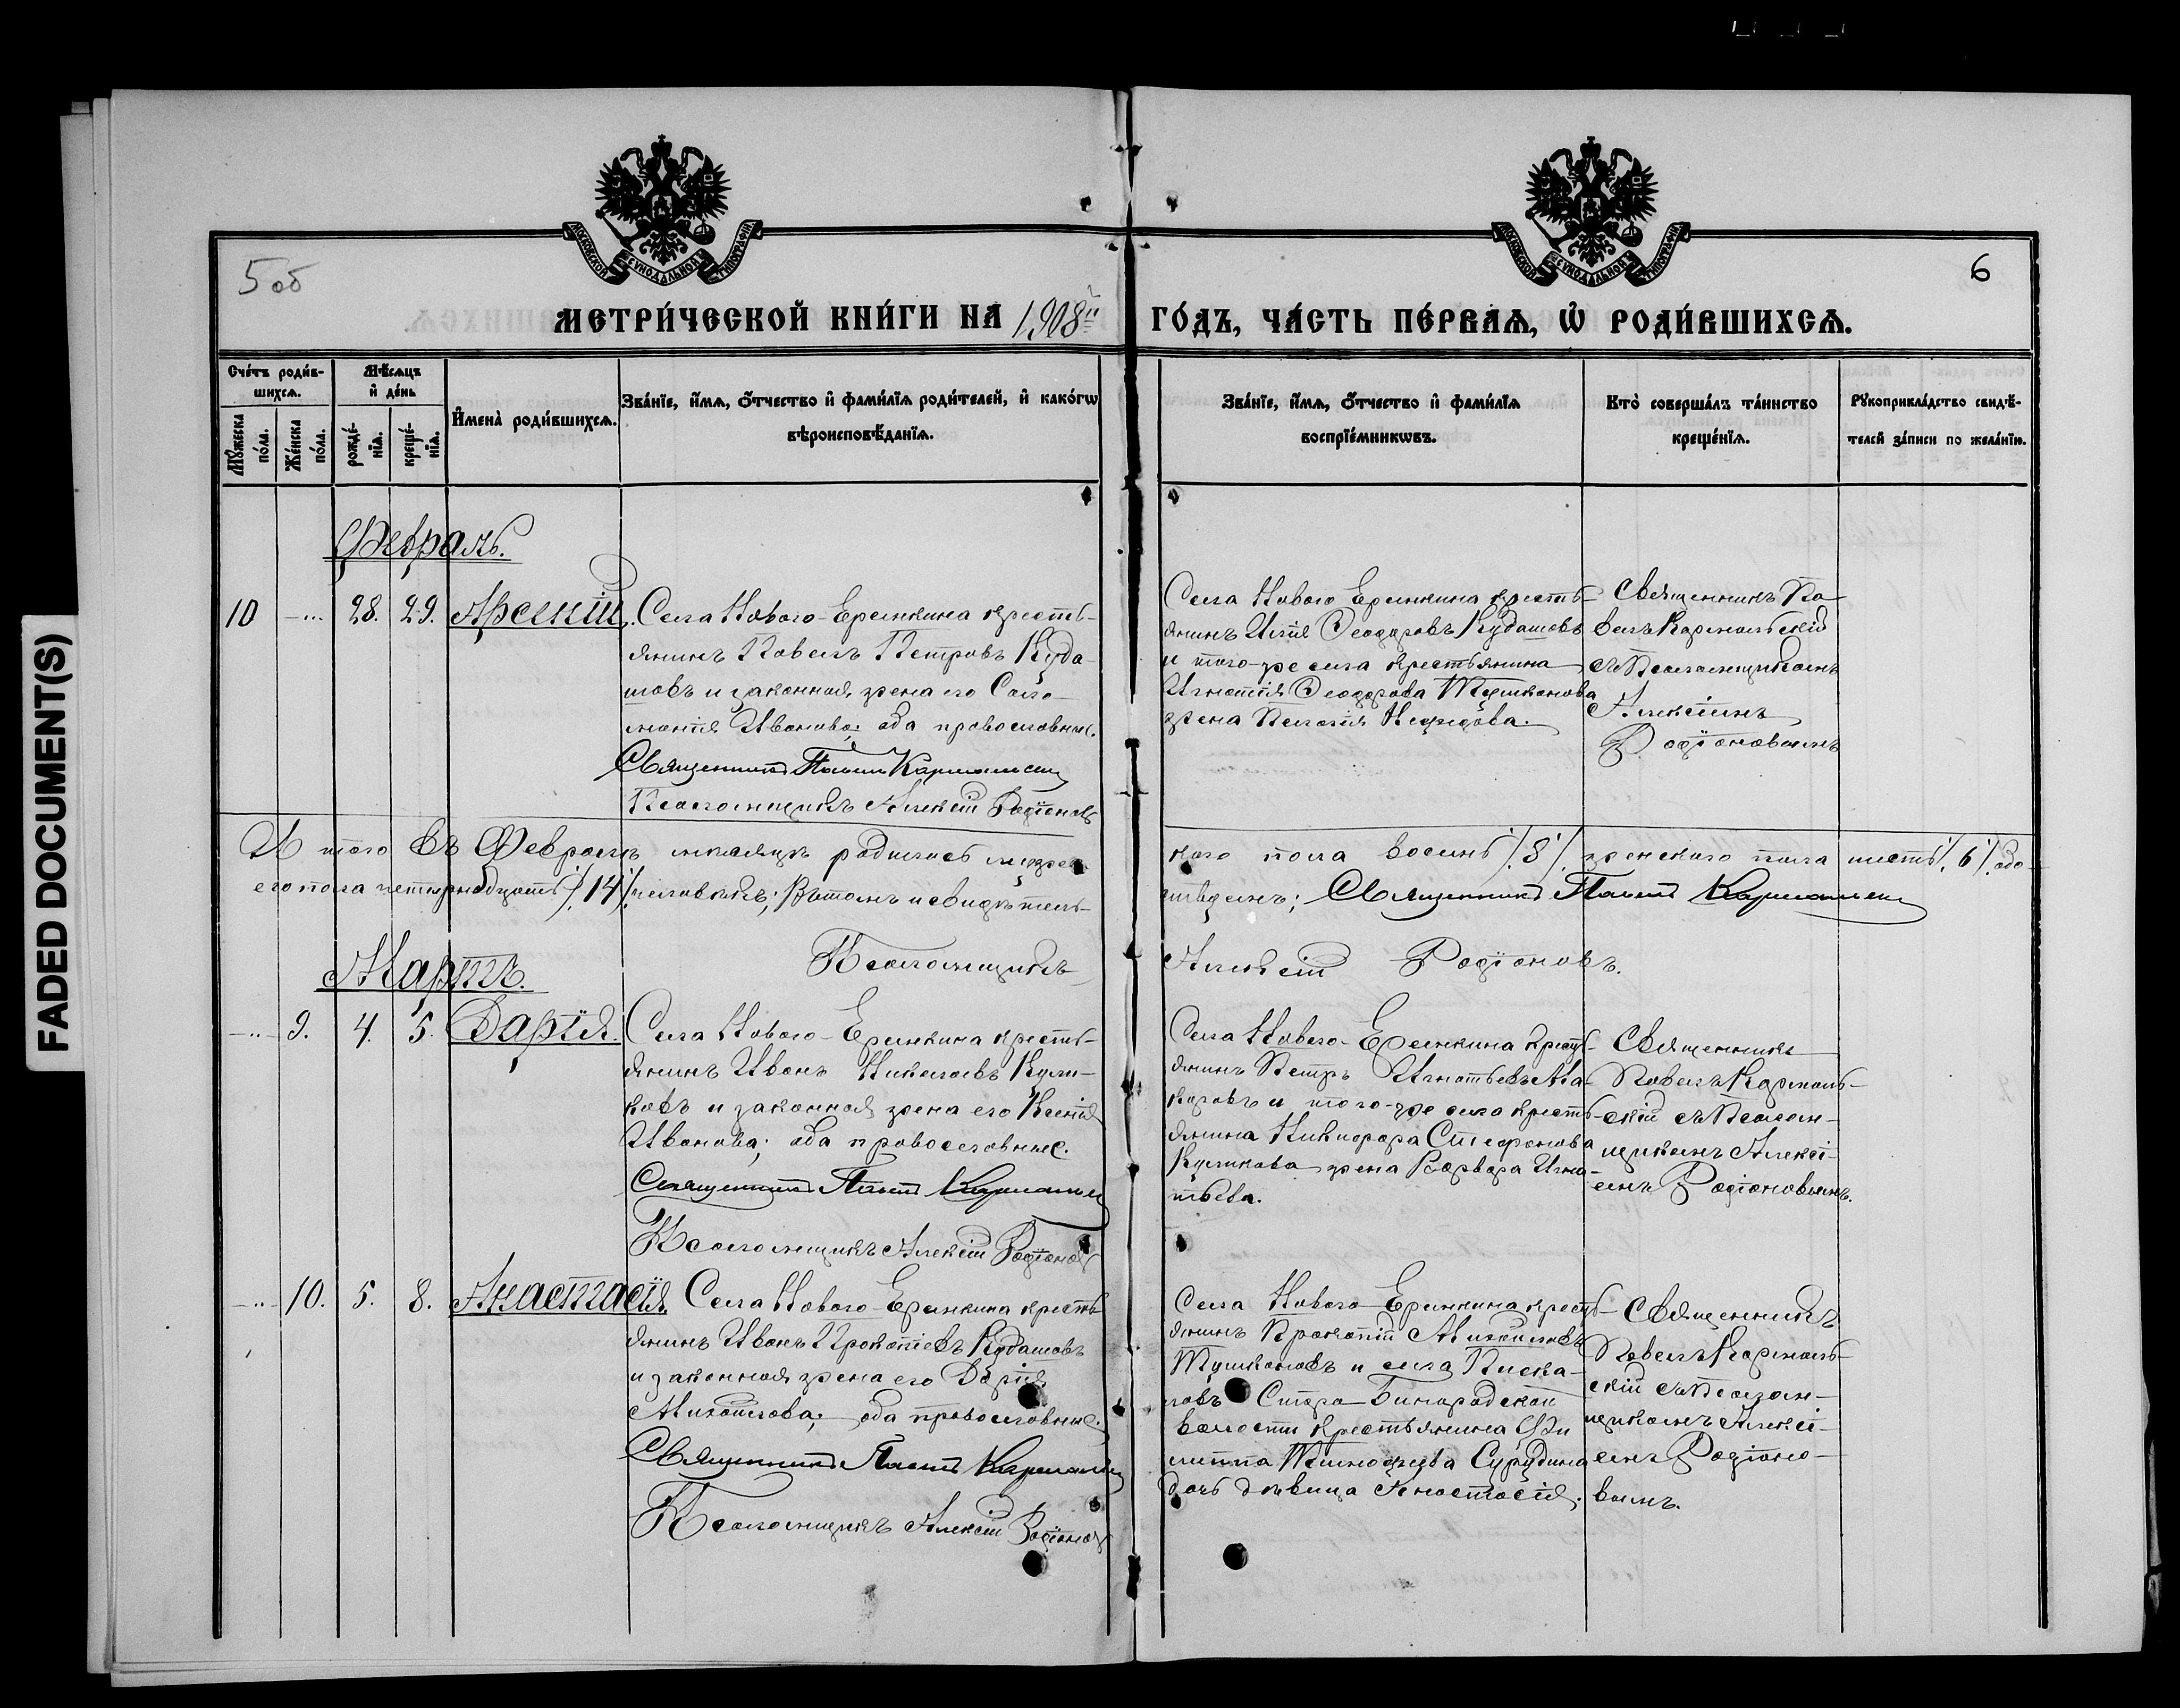 FADED DOCUMENT(S)
МОСКОВСКОЙ СѴНОДАЛЬНОЙ ТИПОГРАФІИ
МОСКОВСКОЙ СѴНОДАЛЬНОЙ ТИПОГРАФІИ
5 об
6
МЕТРИ́ЧЕСКОЙ КНИ́ГИ НА 1908й ГО́ДЪ, ЧА́СТЬ ПЕ́РВАѦ, Ѡ҆ РОДИ́ВШИХСѦ.
Сче́тъ роди́в-
шихсѧ.
Мꙋжеска по́ла.
Же́нска по́ла.
Мѣ́сѧцъ
и҆ де́нь
рожде́-
нїѧ.
креще́-
нїѧ.
И҆мена̀ роди́вшихсѧ.
Зва́нїе, и҆́мѧ, ѻ҆́тчество и҆ фами́лїѧ роди́телей, и҆ како́гѡ
вѣроисповѣ́данїѧ.
Зва́нїе, и҆́мѧ, ѻ҆́тчество и҆ фами́лїѧ
воспрїе́мникѡвъ.
Кто̀ соверша́лъ та́инство
креще́нїѧ.
Рꙋкоприкла́дство свидѣ́-
телей за́писи по жела́нїю.
Февраль.
10 -..- 28. 29. Арсеній.
Села Новаго-Еремкина кресть-
янинъ Павелъ Петровъ Куда-
шовъ и законная жена его Сало-
монія Иванова; оба православные.
Священникъ Павелъ Кармальскій
Псаломщикъ Алексій Родіоновъ
Села Новаго Еремкина кресть-
янинъ Илія Ѳеодоровъ Кудашовъ
и того-же села крестьянина
Игнатія Ѳеодорова Тушканова
жена Пелагія Неѳедова.
Священникъ Па-
велъ Кармальскій
съ Псаломщикомъ
Алексіемъ
Родіоновымъ
И того въ Февралѣ мѣсяцѣ родилось мужес-
каго пола восемь /8/ женскаго пола шесть /6/ обо-
его пола четырнадцать /14/ человѣкъ; Въ томъ и свидѣтель-
ствуемъ; Священникъ Павелъ Кармальскій
Псаломщикъ Алексій Родіоновъ.
Мартъ.
-..- 9. 4. 5. Дарія.
Села Новаго-Еремкина кресть-
янинъ Иванъ Николаевъ Кули-
ковъ и законная жена его Ксенія
Иванова; оба православные.
Священникъ Павелъ Кармальскій
Псаломщикъ Алексій Родіоновъ
Села Новаго-Еремкина кресть-
янинъ Петръ Игнатьевъ Ма-
каровъ и того-же села кресть-
янина Никифора Стефанова
Куликова жена Варвара Игна-
тьева.
Священникъ
Павелъ Кармаль-
скій съ Псалом-
щикомъ Алексі-
емъ Родіоновымъ.
-..- 10. 5. 8. Анастасія.
Села Новаго-Еремкина кресть-
янинъ Иванъ Прокопіевъ Кудашовъ
и законная жена его Дарія
Михайлова; оба православные.
Священникъ Павелъ Кармальскій
Псаломщикъ Алексій Родіоновъ
Села Новаго Еремкина кресть-
янинъ Прокопій Михайловъ
Тушкановъ и села Писка-
ловъ Старо-Бинарадской
волости крестьянина Фи-
липпа Тимоѳеева
дочь дѣвица Анастасія;
Священникъ
Павелъ Кармаль-
скій съ Псалом-
щикомъ Алексі-
емъ Родіоно-
вымъ.